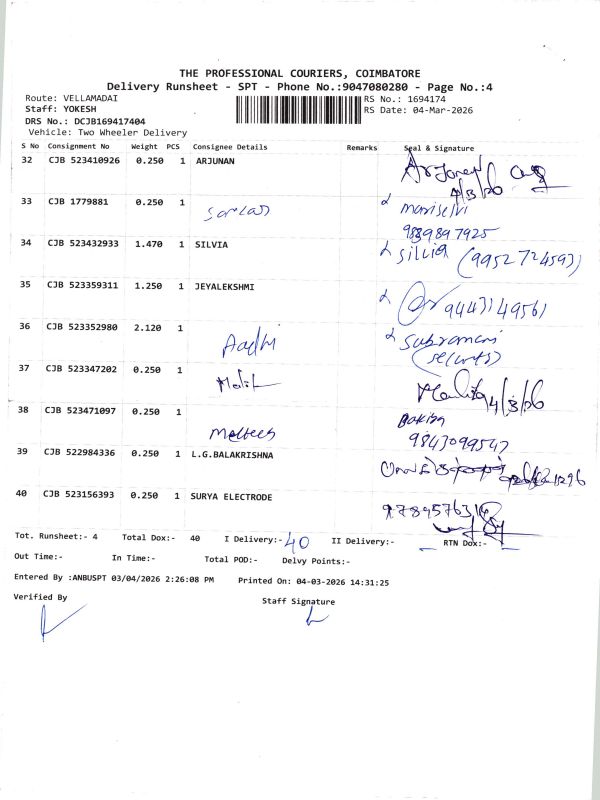 THE PROFESSIONAL COURIERS, COIMBATORE
Delivery Runsheet - SPT - Phone No.:9047080280 - Page No.:4
Route: VELLAMADAI
RS No.: 1694174
Staff: YOKESH
RS Date: 04-Mar-2026
DRS No.: DCJB169417404
Vehicle: Two Wheeler Delivery
S No Consignment No Weight PCS Consignee Details Remarks Seal & Signature
32 CJB 523410926 0.250 1 ARJUNAN
4/3/26
33 CJB 1779881 0.250 1 mariselvi
34 CJB 523432933 1.470 1 SILVIA silvia (9952724593)
35 CJB 523359311 1.250 1 JEYALEKSHMI 9443149561
36 CJB 523352980 2.120 1 Aadhi Subramani
(security)
37 CJB 523347202 0.250 1 4/3/26
38 CJB 523471097 0.250 1
9843099547
39 CJB 522984336 0.250 1 L.G.BALAKRISHNA
40 CJB 523156393 0.250 1 SURYA ELECTRODE
Tot. Runsheet:- 4 Total Dox:- 40 I Delivery:- 40 II Delivery:- RTN Dox:-
Out Time:- In Time:- Total POD:- Delvy Points:-
Entered By :ANBUSPT 03/04/2026 2:26:08 PM Printed On: 04-03-2026 14:31:25
Verified By
Staff Signature